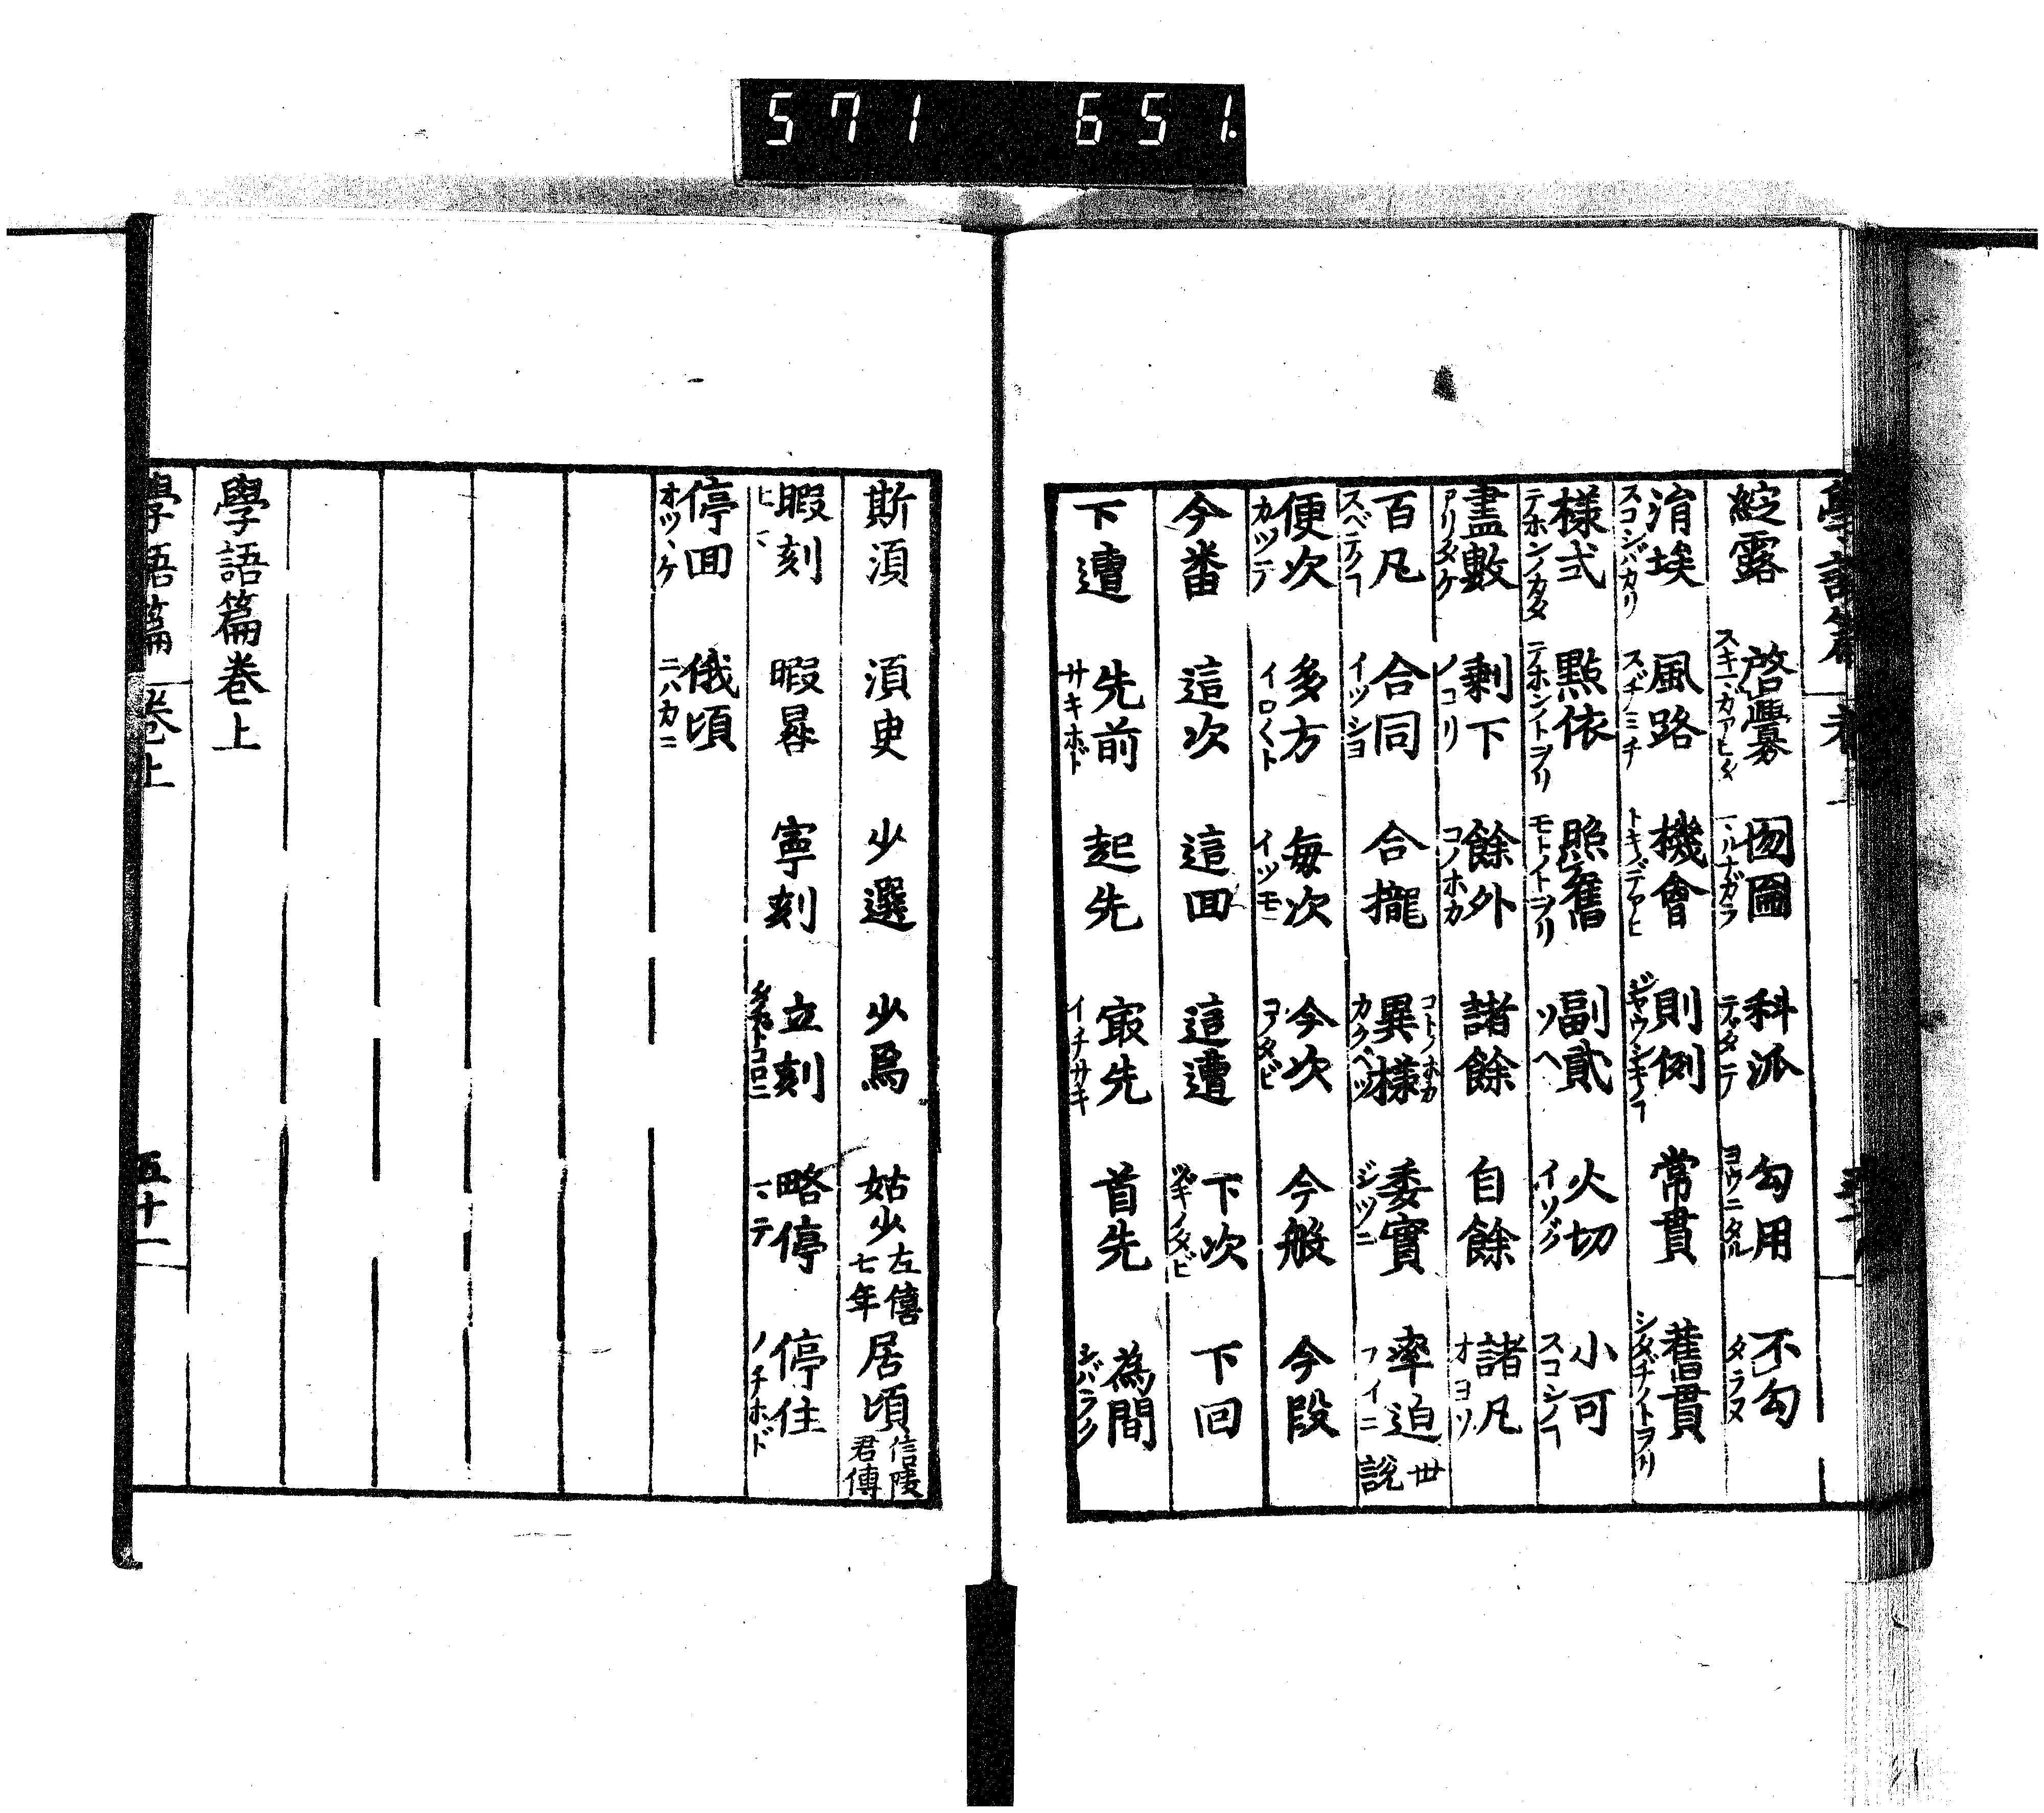 571 651.
綻露 啓釁スキマガアヒタ 囫圇マルナガラ 科派テダテ 勾用ヨウニタル 不勾タラヌ
涓埃スコシバカリ 風路スヂノミチ 機會トキノデアヒ 則例ジャウシキノヿ 常貫 舊貫シタヂノトヲリ
樣式テホンノカタ 㸃依テホンノトヲリ 照舊モトノトヲリ 副貳ソヘ 火切イソグ 小可スコシノヿ
盡數アリタケ 剩下ノコリ 餘外コノホカ 諸餘 自餘 諸凡オヨソ
百凡スベテノヿ 合同イツシヨ 合攏 異樣コトノホカカクベツ 委實ジツニ 率迫フイニ世説
便次カツテ 多方イロ〱ト 每次イツモ 今次コノタビ 今般 今段
今番 這次 這回 這遭 下次ツギノタビ 下回
下遭 先前サキホド 起先 㝡先イチサキ 首先 為間シバラク
斯湏 湏臾 少選 少焉 姑少左僖七年 居頃信陵君傳
暇刻 暇晷 寧刻 立刻タチトコロニ 略停マテ 停住ノチホド
停回オツヽケ 俄頃ニハカニ
學語篇卷上
學語篇 卷上 五十一